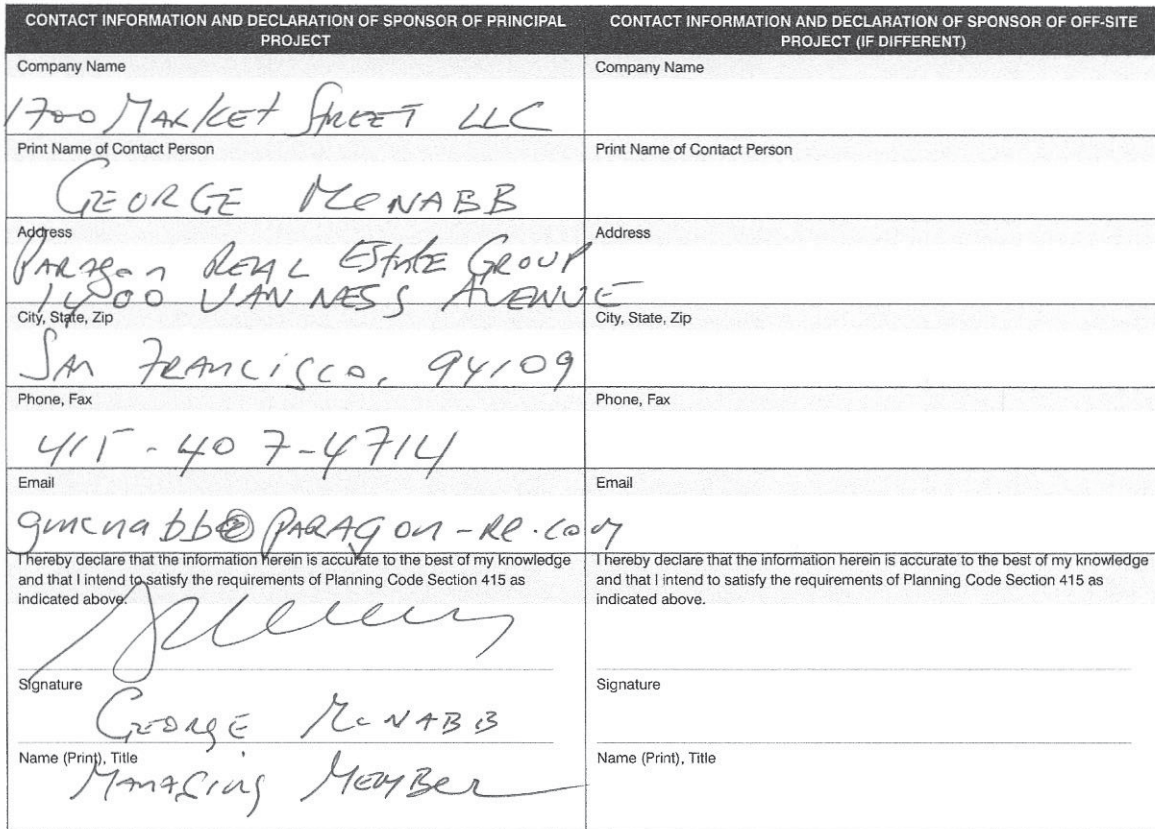 CONTACT INFORMATION AND DECLARATION OF SPONSOR OF PRINCIPAL
PROJECT
Company Name
1700 MARKET STREET LLC
Print Name of Contact Person
GEORGE McNABB
Address
PARAGON REAL ESTATE GROUP
1400 VAN NESS AVENUE
City, State, Zip
SAN FRANCISCO, 94109
Phone, Fax
415-407-4714
Email
gmcnabb@PARAGON-Re.com
I hereby declare that the information herein is accurate to the best of my knowledge
and that I intend to satisfy the requirements of Planning Code Section 415 as
indicated above.
Signature
GEORGE McNABB
Name (Print), Title
MANAGING MEMBER
CONTACT INFORMATION AND DECLARATION OF SPONSOR OF OFF-SITE
PROJECT (IF DIFFERENT)
Company Name
Print Name of Contact Person
Address
City, State, Zip
Phone, Fax
Email
I hereby declare that the information herein is accurate to the best of my knowledge
and that I intend to satisfy the requirements of Planning Code Section 415 as
indicated above.
Signature
Name (Print), Title